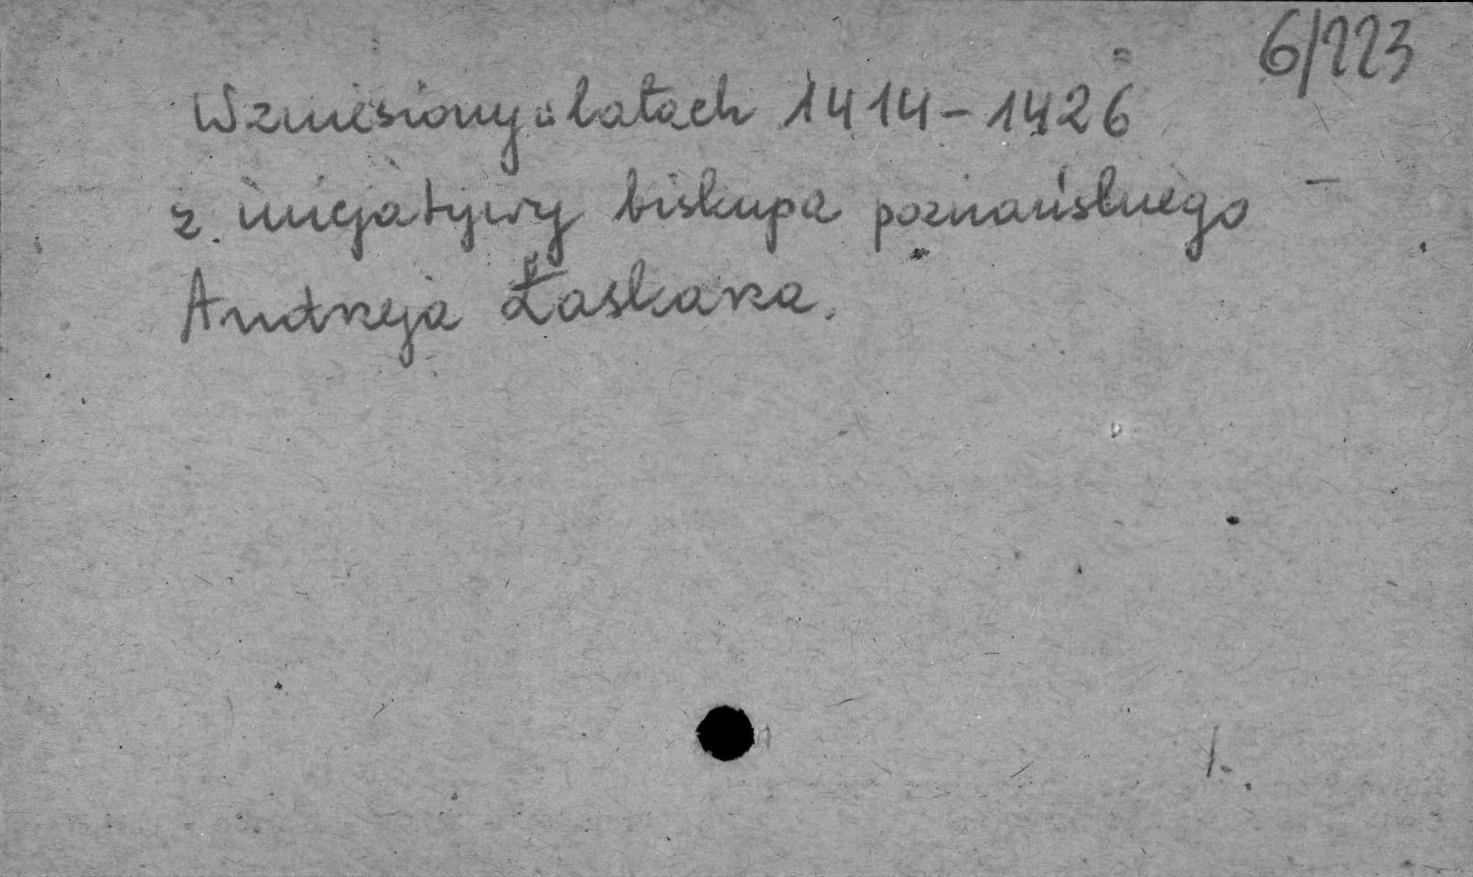 6/223
Wzniesiony w latach 1414-1426
z inicjatywy biskupa poznańskiego
Andrzeja Łaskarza.
1.